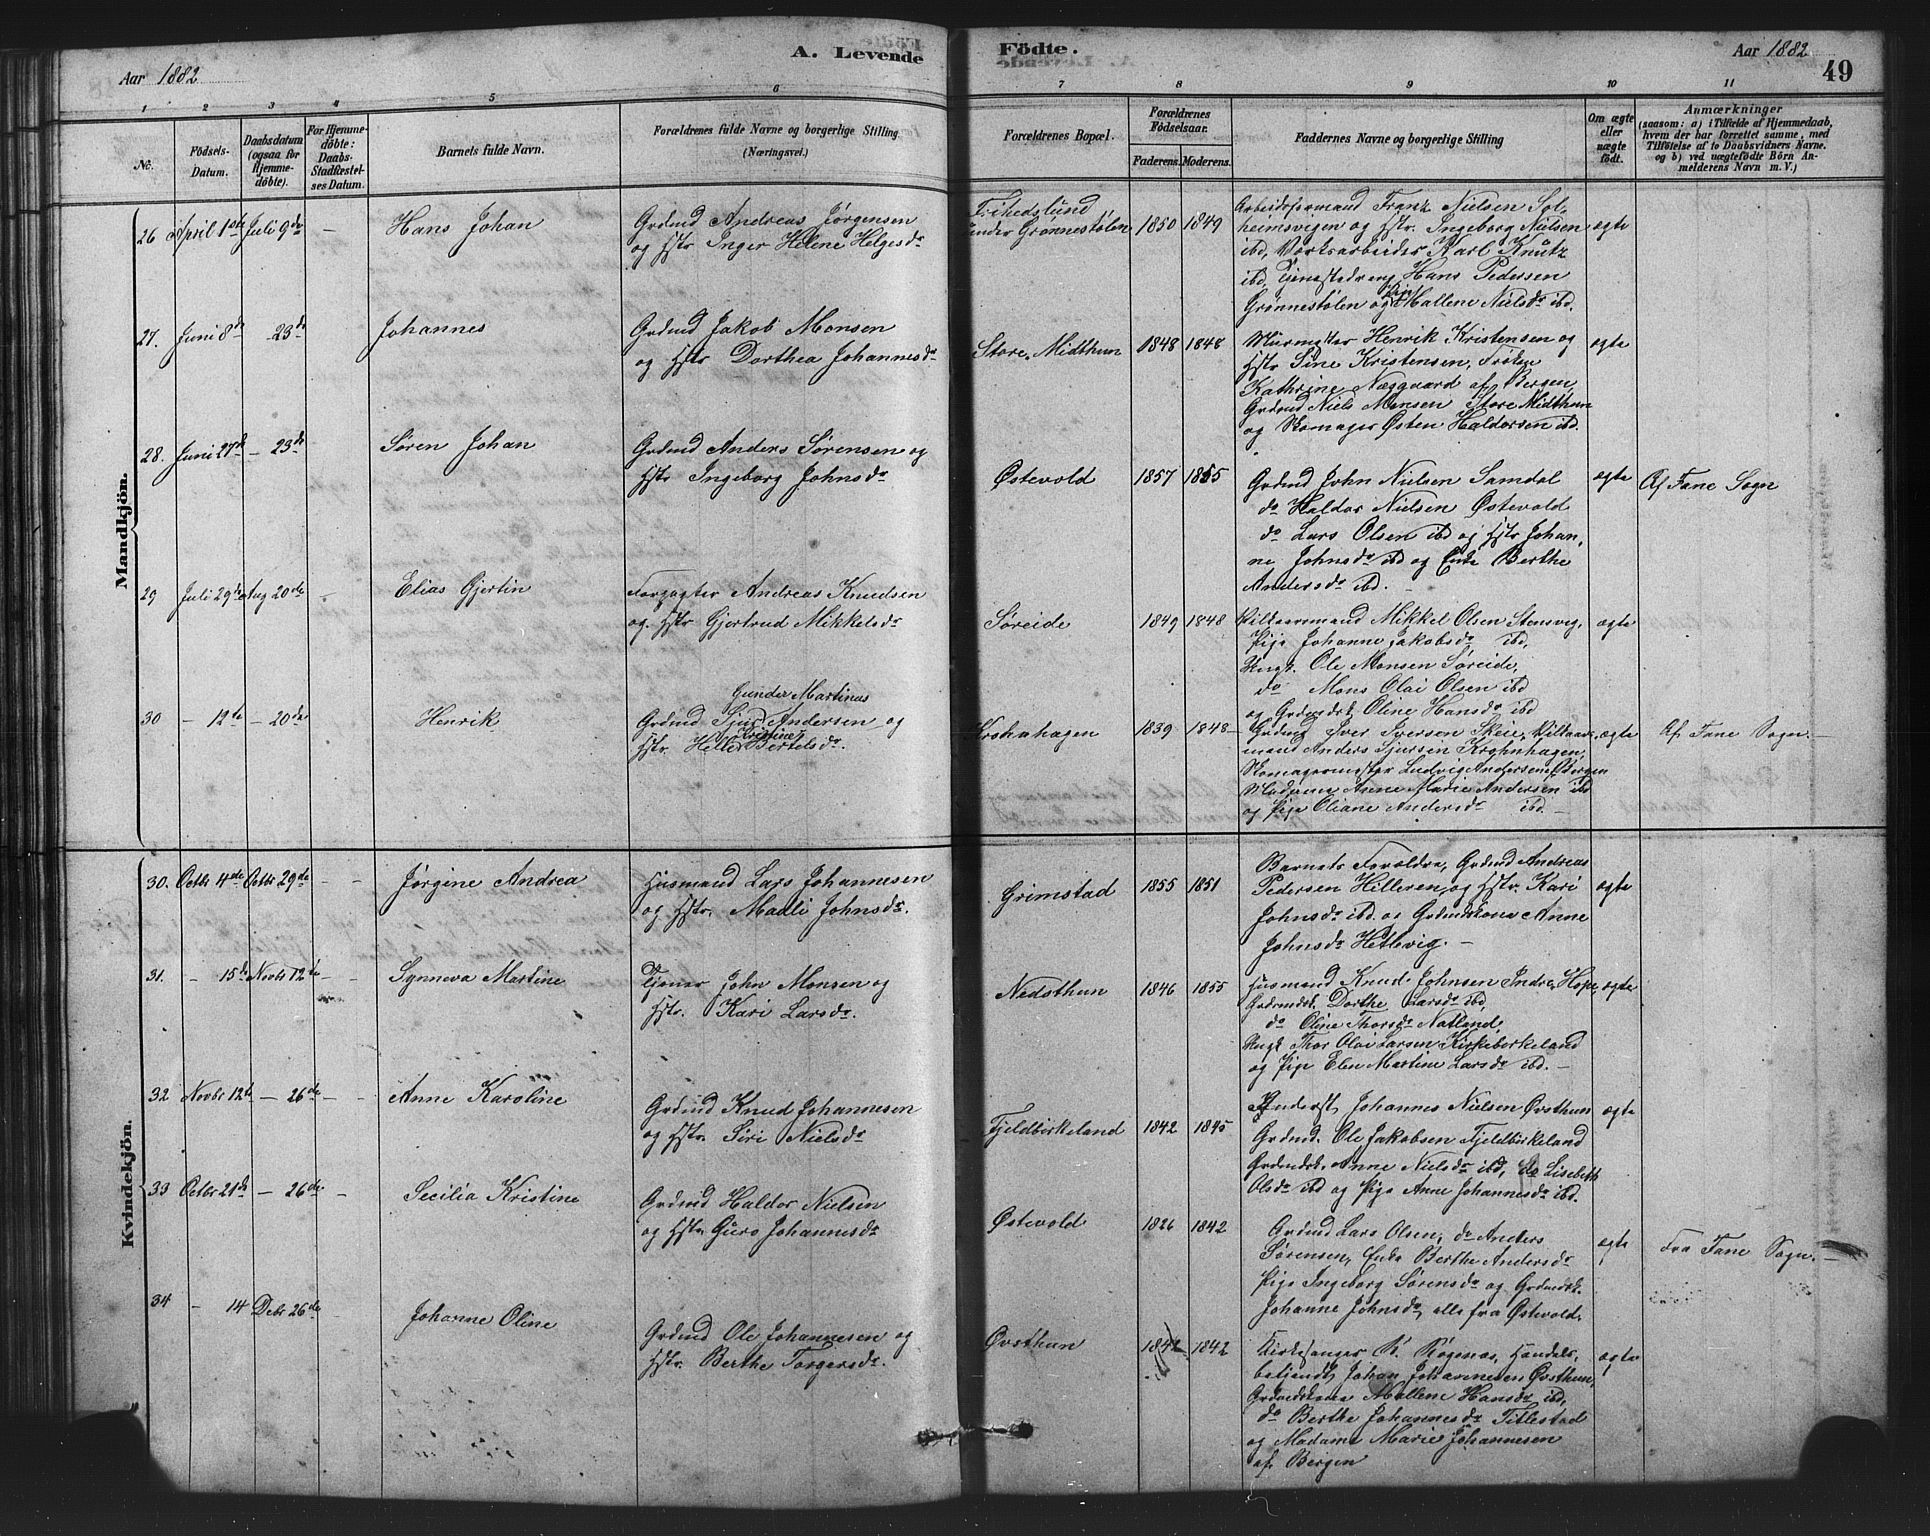 Aar 1882
A. Levende
Födte.
Aar 1882
49
1 2 3 4 5 6 7 8 9 10 11
No.
Födsels-
Datum.
Daabsdatum
(ogsaa for
Hjemme-
döbte).
For Hjemme-
döbte:
Daabs-
Stadfæstel-
ses Datum.
Barnets fulde Navn.
Forældrenes fulde Navne og borgerlige Stilling
(Næringsvei.)
Forældrenes Bopæl.
Forældrenes
Födselsaar.
Faderens. Moderens.
Faddernes Navne og borgerlige Stilling
Om ægte
eller
uægte
födt.
Anmærkninger
(saasom: a) i Tilfælde af Hjemmedaab,
hvem der har forrettet samme, med
Tilföielse af to Daabsvidners Navne.
og b) ved uægtefödte Börn An-
melderens Navn m. V.)
Mandkjön.
26 April 1ste Juli 9de -
Hans Johan
Grdmd Andreas Jørgensen
og Hstr Inger Helene Helgesdr
Frihedslund
under Grønnestølen
1850 1849
Arbeidsformand Frank Nielsen Sol-
heimsvigen og Hstr. Ingeborg Nielsen
ibd, Værksarbeider Karl Knutz
ibd, Tjenestedreng Hans Pedersen
Grønnestølen og Pige Mallene Nielsdr ibd.
ægte
27. Juni 8de - 23de
Johannes
Grdmd Jakob Monsen
og Hstr Dorthea Johannesdr
Store Midthun
1848 1848
Murmester Henrik Kristensen og
Hstr Sine Kristensen, Frøken
Kathrine Næggaard af Bergen,
Grdmd Niels Monsen Store Midthun
og Skomager Østen Haldorsen ibd.
ægte
28. Juni 27de - 23de
Søren Johan
Grdmd Anders Sørensen og
Hstr Ingeborg Johnsdr
Østevold
1857 1855
Grdmd John Nielsen Samdal
do Haldor Nielsen Østevold
do Lars Olsen ibd og Hstr Johan-
ne Johnsdr ibd og Enke Berthe
Andersdr ibd.
ægte
Af Fane Sogn
29 Juli 29de Aug 20de -
Elias Gjertin
Forpagter Andreas Knudsen
og Hstr Gjertrud Mikkelsdr
Søreide
1849 1848
Kilkaarmand Mikkel Olsen Stensvig,
Pige Johanne Jakobsdr ibd,
Ungk. Ole Monsen Søreide,
do Mons Olai Olsen ibd
og Grdmdsk. Oline Hansdr ibd
ægte
30 - 12te - 20de
Henrik
Gunder Martinus
Grdmd Sjurd Andersen og
Kristine
Hstr. Helle Bertelsdr.
Krohnhagen
1839 1848
Grdmd Iver Iverson Skeie, Kilkaar-
mand Anders Sjursen Krohnhagen,
Skomagermester Ludvig Andersen, Bergen
Madame Anne Marie Andersen ibd
og Pige Oliane Andersdr ibd. -
ægte
Af Fane Sogn. -
Kvindekjön.
30. Octbr 4de Octbr 29de - -
Jørgine Andrea
Husmand Lars Johannesen
og Hstr. Madli Johnsdr.
Grimstad
1855 1851
Barnets Forældre, Grdmd Andreas
Pedersen Hilleren, og Hstr. Kari
Johnsdr ibd. og Grdmdskone Anne
Johnsdr Hetlevig. -
ægte
31. - 15de Novbr 12te - -
Synneva Martine
Tjener John Monsen og
Hstr. Kari Larsdr.
Nedsthun
1846 1855
Husmand Knud Johnsen Indre Hope,
Grdmdsk. Dorthe Larsdr ibd,
do Oline Thorsdr Natland,
Ungk Thor Olai Larsen Kirkebirkeland
og Pige Elen Martine Larsdr ibd. -
ægte
32 Novbr 12te - 26de - -
Anne Karoline
Grdmd Knud Johannesen
og Hstr. Siri Nielsdr
Fjeldbirkeland
1842 1845
Underoff. Johannes Nielsen Øvsthun
Grdmd. Ole Jakobsen Fjeldbirkeland
Grdmdsk. Anne Nielsdr ibd, do Lisebeth
Olsdr ibd og Pige Anne Johannesdr ibd.
ægte
33 Octbr 21de - 26de -
Secilia Kristine
Grdmd Haldor Nielsen
og Hstr. Guro Johannesdr
Østevold
1826 1842
Grdmd Lars Olsen, do Anders
Sørensen, Enke Berthe Andersdr
Pige Ingeborg Sørensdr og Grdmdsk.
Johanne Johnsdr, alle fra Østevold.
ægte
Fra Fane Sogn. -
34 - 14 Debr 26de
Johanne Oline
Grdmd Ole Johannesen og
Hstr. Berthe Torgersdr.
Øvsthun
1842 1842
Kirkesanger R. Røgenæs, Handels-
betjendt Johan Johannesen Øvsthun,
Grdmdskone Mallene Hansdr ibd,
do Berthe Johannesdr Titlestad
og Madame Marie Johannesen
af Bergen
ægte